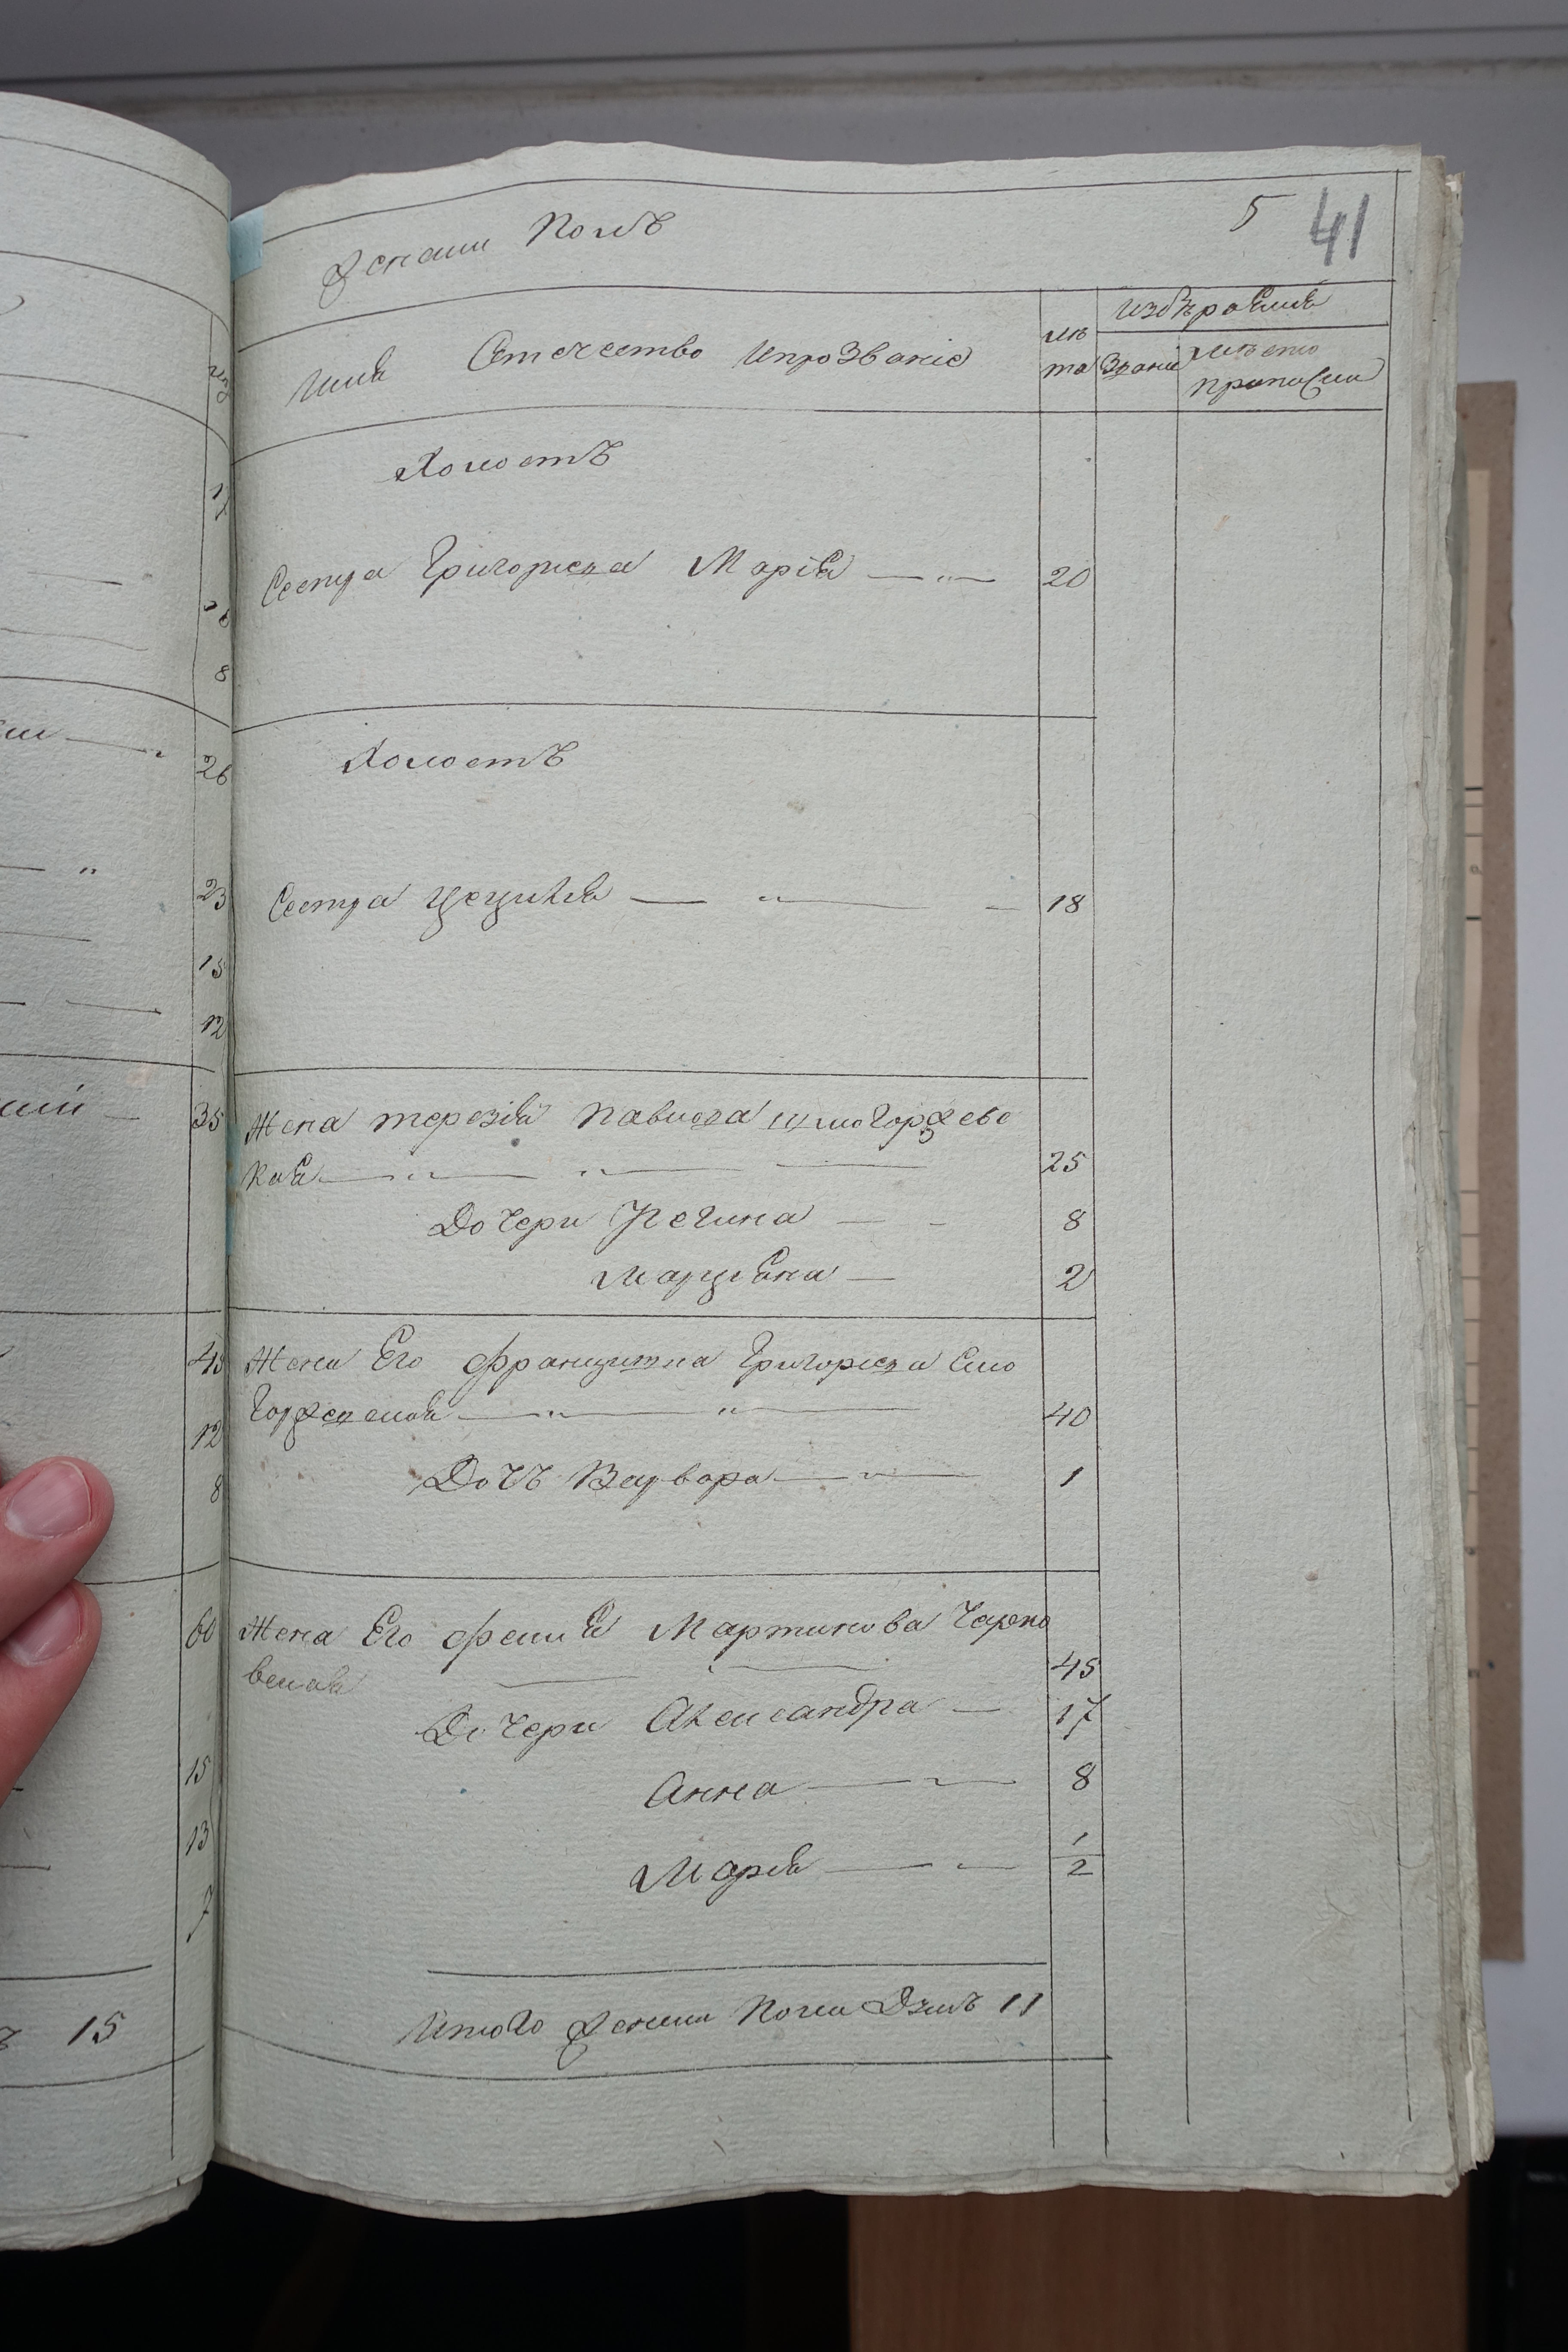 Женши Полъ
5 41
Имя Отечество ипрозваніе
лѣ
та
избѣраемъ
Званіе
мѣсто
прописки
Холостъ
Сестра Григорьева Марія 20
Холостъ
Сестра Цецилія 18
Жена терезія Павлова
кая 25
Дочери Регина 8
Марціяна 2
Жена Его францишка Григорьева Смо
40
Дочъ Варвара 1
Жена Его Мартинова Чарно
вская 45
Дочери Александра 17
Анна 8
Марія 1/2
Итого Женши Пола Дзшъ 11
17
8
26
23
15
12
35
43
12
8
60
15
13
7
ъ 15